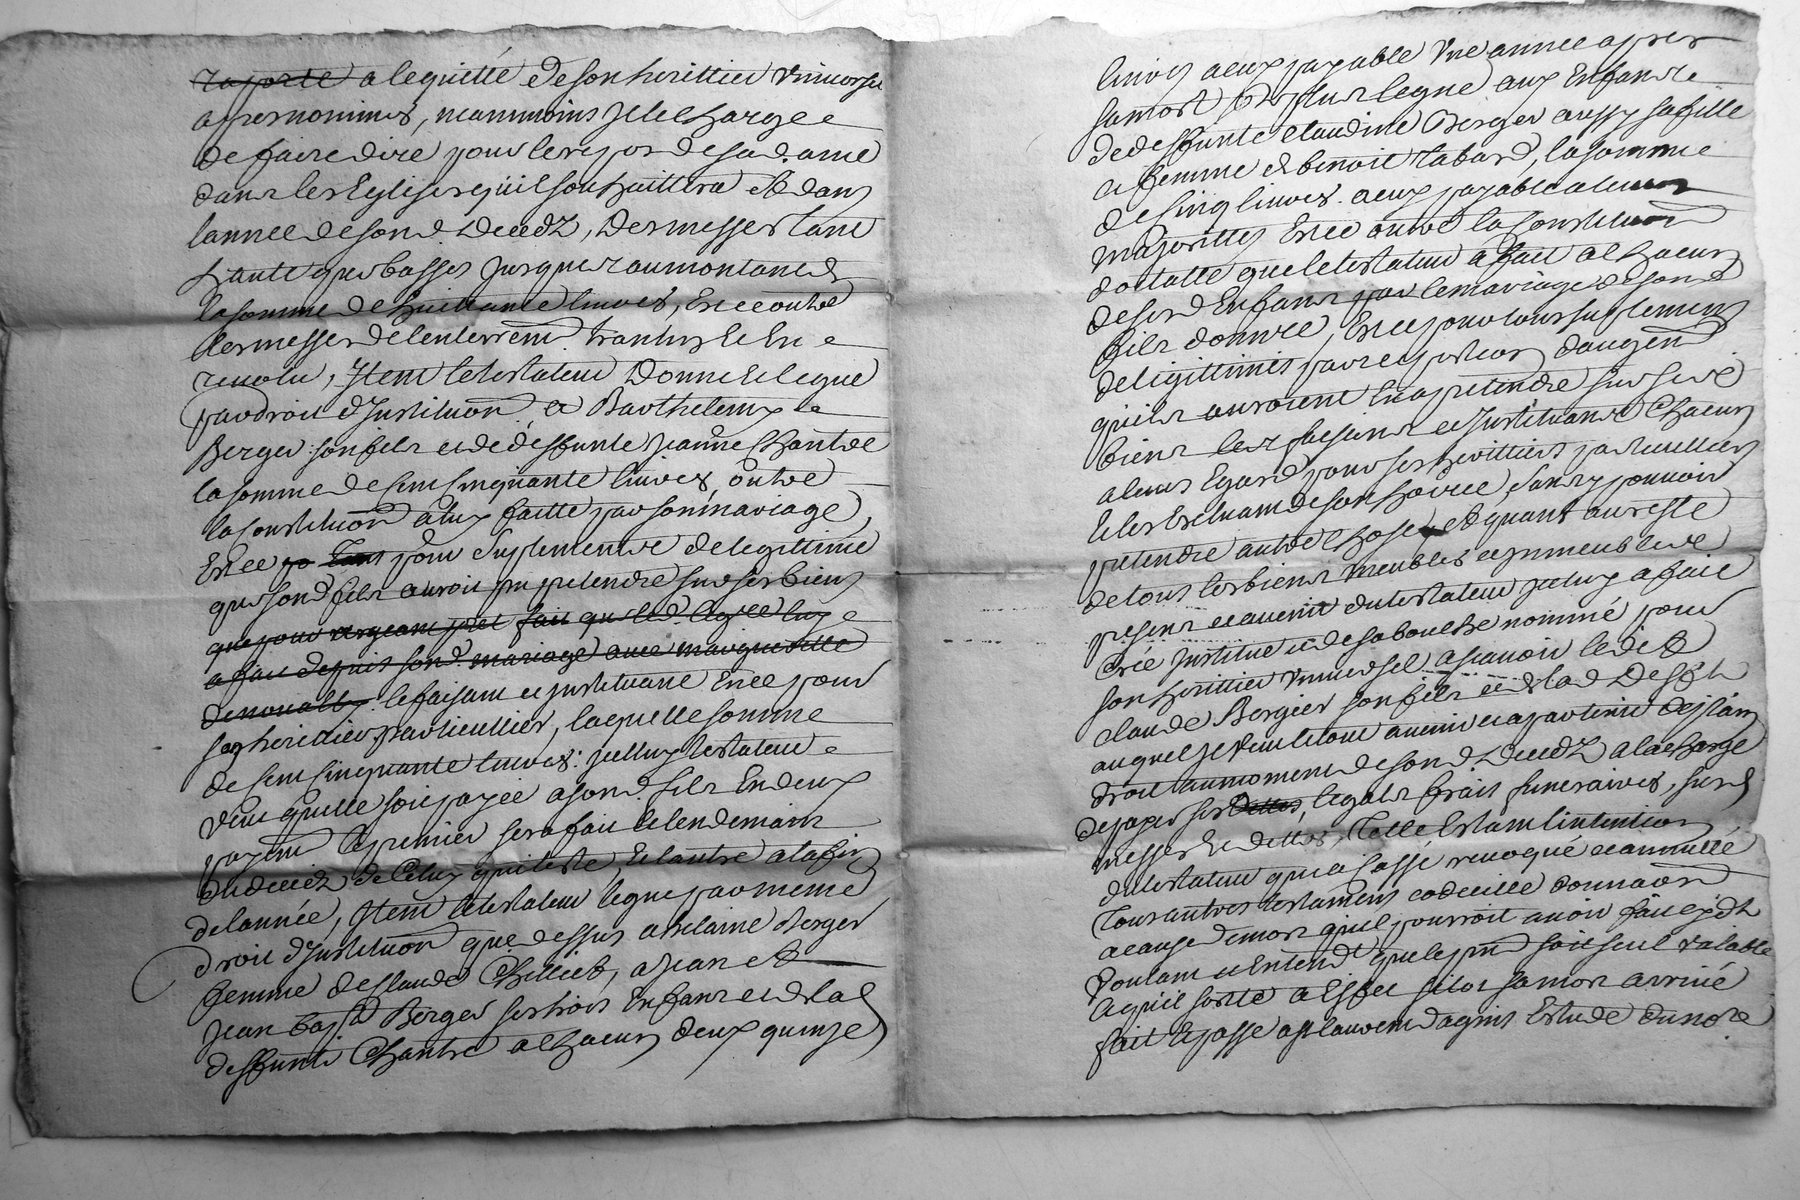 raporte a lequitté de son herittier universel
apres nommés, neanmoins Je le charge
de faire dire pour le repos de sad. ame
dans les Eglises quil souhaittera et dans
lannee de sond. deced, des messes tant
haute que basses Jusques au montant de
la somme de huittante livres, Et ce outre
les messes de lenterrem
Item le testateur Donne et legue
par droit d'Institution a Barthelemy
Berger son fils et de deffunte Jeanne Chantre
la somme de Cent Cinquante livres, outre
la Constitution a luy faitte par son mariage,
Et ce po tous pour suplement de legittime
que sond fils auroit pu pretendre sur ses biens
que pour argent prêt fait que led.
a fait depuis sond. mariage avec margueritte
le faisant et Instituant En ce pour
son heritier particullier, laquelle somme
de Cent Cinquante livres: Jcelluy testateur
veut quelle soit payée a sond. fils En deux
payem le premier sera fait le lendemain
du deced de Celuy qui teste, et lautre a la fin
de lannée, Item le testateur legue par meme
droit d'Institution que dessus a helaine Berger
femme de Claude Chilliet, a Jean et
Jean bapt Berger ses trois Enfans et de lad
deffunte Chantre a chacun deux quinze
livres a eux payable Une annee apres
sa mort, de plus legue aux Enfans
de deffunte Claudine Berger aussy sa fille
et femme de benoit tabard, la somme
de Cinq livres a eux payable a leurs
majorittes Et ce outre la Constitution
dotalle que le testateur a fait a chacun
de sesd Enfans par le mariage de sond
fils donnee, Et ce pour tous suplemens
de legittimes
quils auroient Eu a pretendre sur sesd
biens les faisant et Instituant chacun
a leurs Egard pour ses herittiers particulliers
et les Excluant de son hoirie, sans pouvoir
pretendre autre chose, et quant au reste
de tous les biens meubles et Immeubles
present et avenir du testateur Jceluy a fait
créé Institué et de sa bouche nommé pour
son herittier universel a scavoir ledit
claude Bergier son fils et de lad Deff
auquel Je veut le tout avenir et apartenir de plain
droit au moment de sond deced a la charge
de payer ses dettes, legats frais funeraires, susd
messes et dettes, telle Estant lintention
du testateur qui a Cassé revoqué et annullé
tous autres testamens codecille donnaon
a cause de mort quil pourroit avoir fait cydt
voulant et Entend que le pnt soit seul valable
et quil sorte a Effet sitot sa mort arrivé
fait et passé a st laurent dagnis Estude du no.re